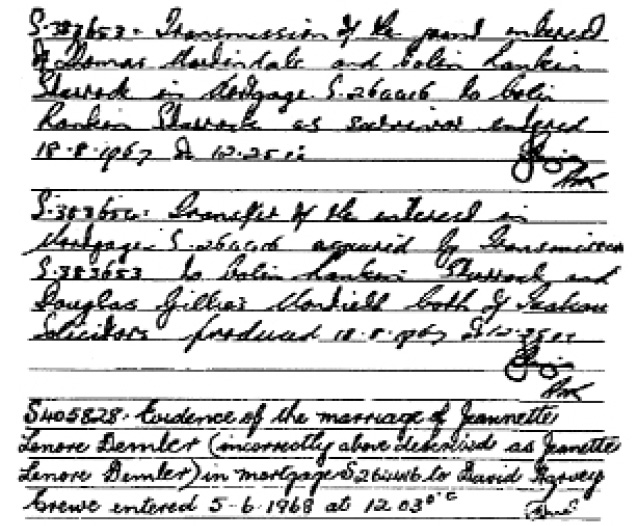 S.383653. Transmission of the joint interest
of Thomas Martindale and Colin Rankin
Sharrock in Mortgage S.264416 to Colin
Rankin Sharrock as survivor entered
18.8.1967 at 12.25
S.383654. Transfer of the interest in
Mortgage S.264416 acquired by Transmission
S.383653 to Colin Rankin Sharrock and
Douglas Gillies both of
Solicitors produced 18.8.1967 at 12.25
S405828. Evidence of the marriage of Jeannette
Lenore Demler (incorrectly above described as Jeanette
Lenore Demler) in mortgage S264416 to David Harvey
Crewe entered 5.6.1968 at 12.03 oc